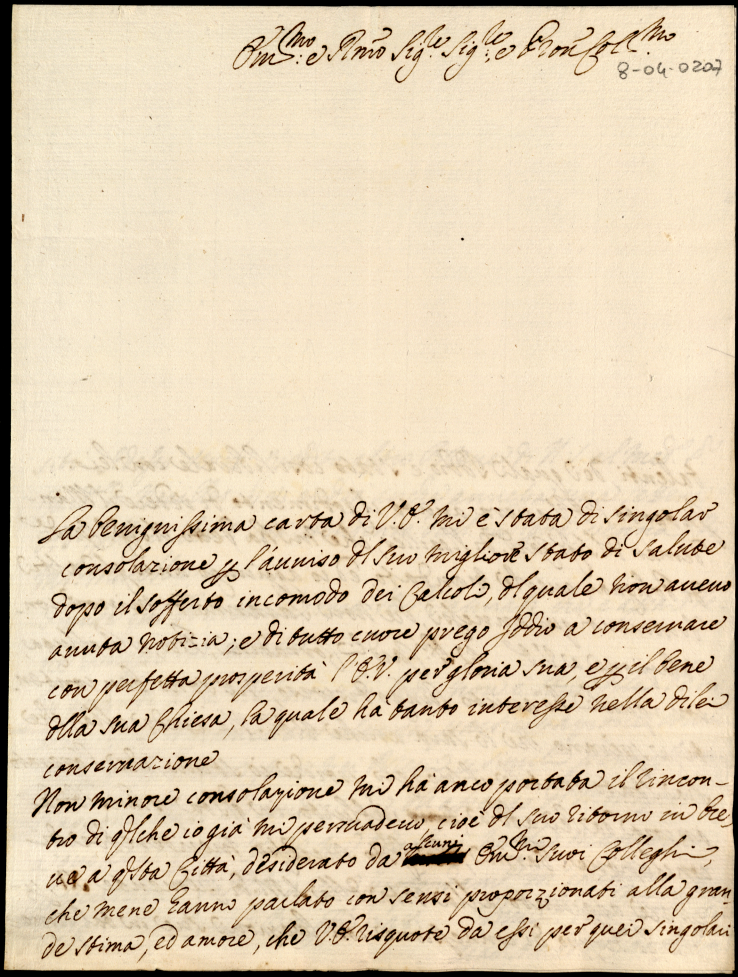 Em.mo e R.mo Sig.re Sig.re e P.ron Coll.mo
8-04-0207
La benignissima carta di V.E. mi è stata di singolar
consolazione p l'auuiso dl suo migliore stato di salute
dopo il sofferto incomodo dei Calcoli, dl quale non aueuo
auuta notizia; e di tutto cuore prego Iddio a conseruare
con perfetta prosperità l'E.V. per gloria sua, e p il bene
dlla sua Chiesa, la quale ha tanto interesse nella di lei
conseruazione
Non minore consolazione mi ha anco portata il rincon-
tro di qlche io già mi persuadeuo cioè dl suo ritorno in bre,
ue a qsta Città, desiderato da alcuni Em.mi suoi Colleghi,
che mene hanno parlato con sensi proporzionati alla gran-
de stima, ed amore, che V.E. risquote da essi per quei singolari